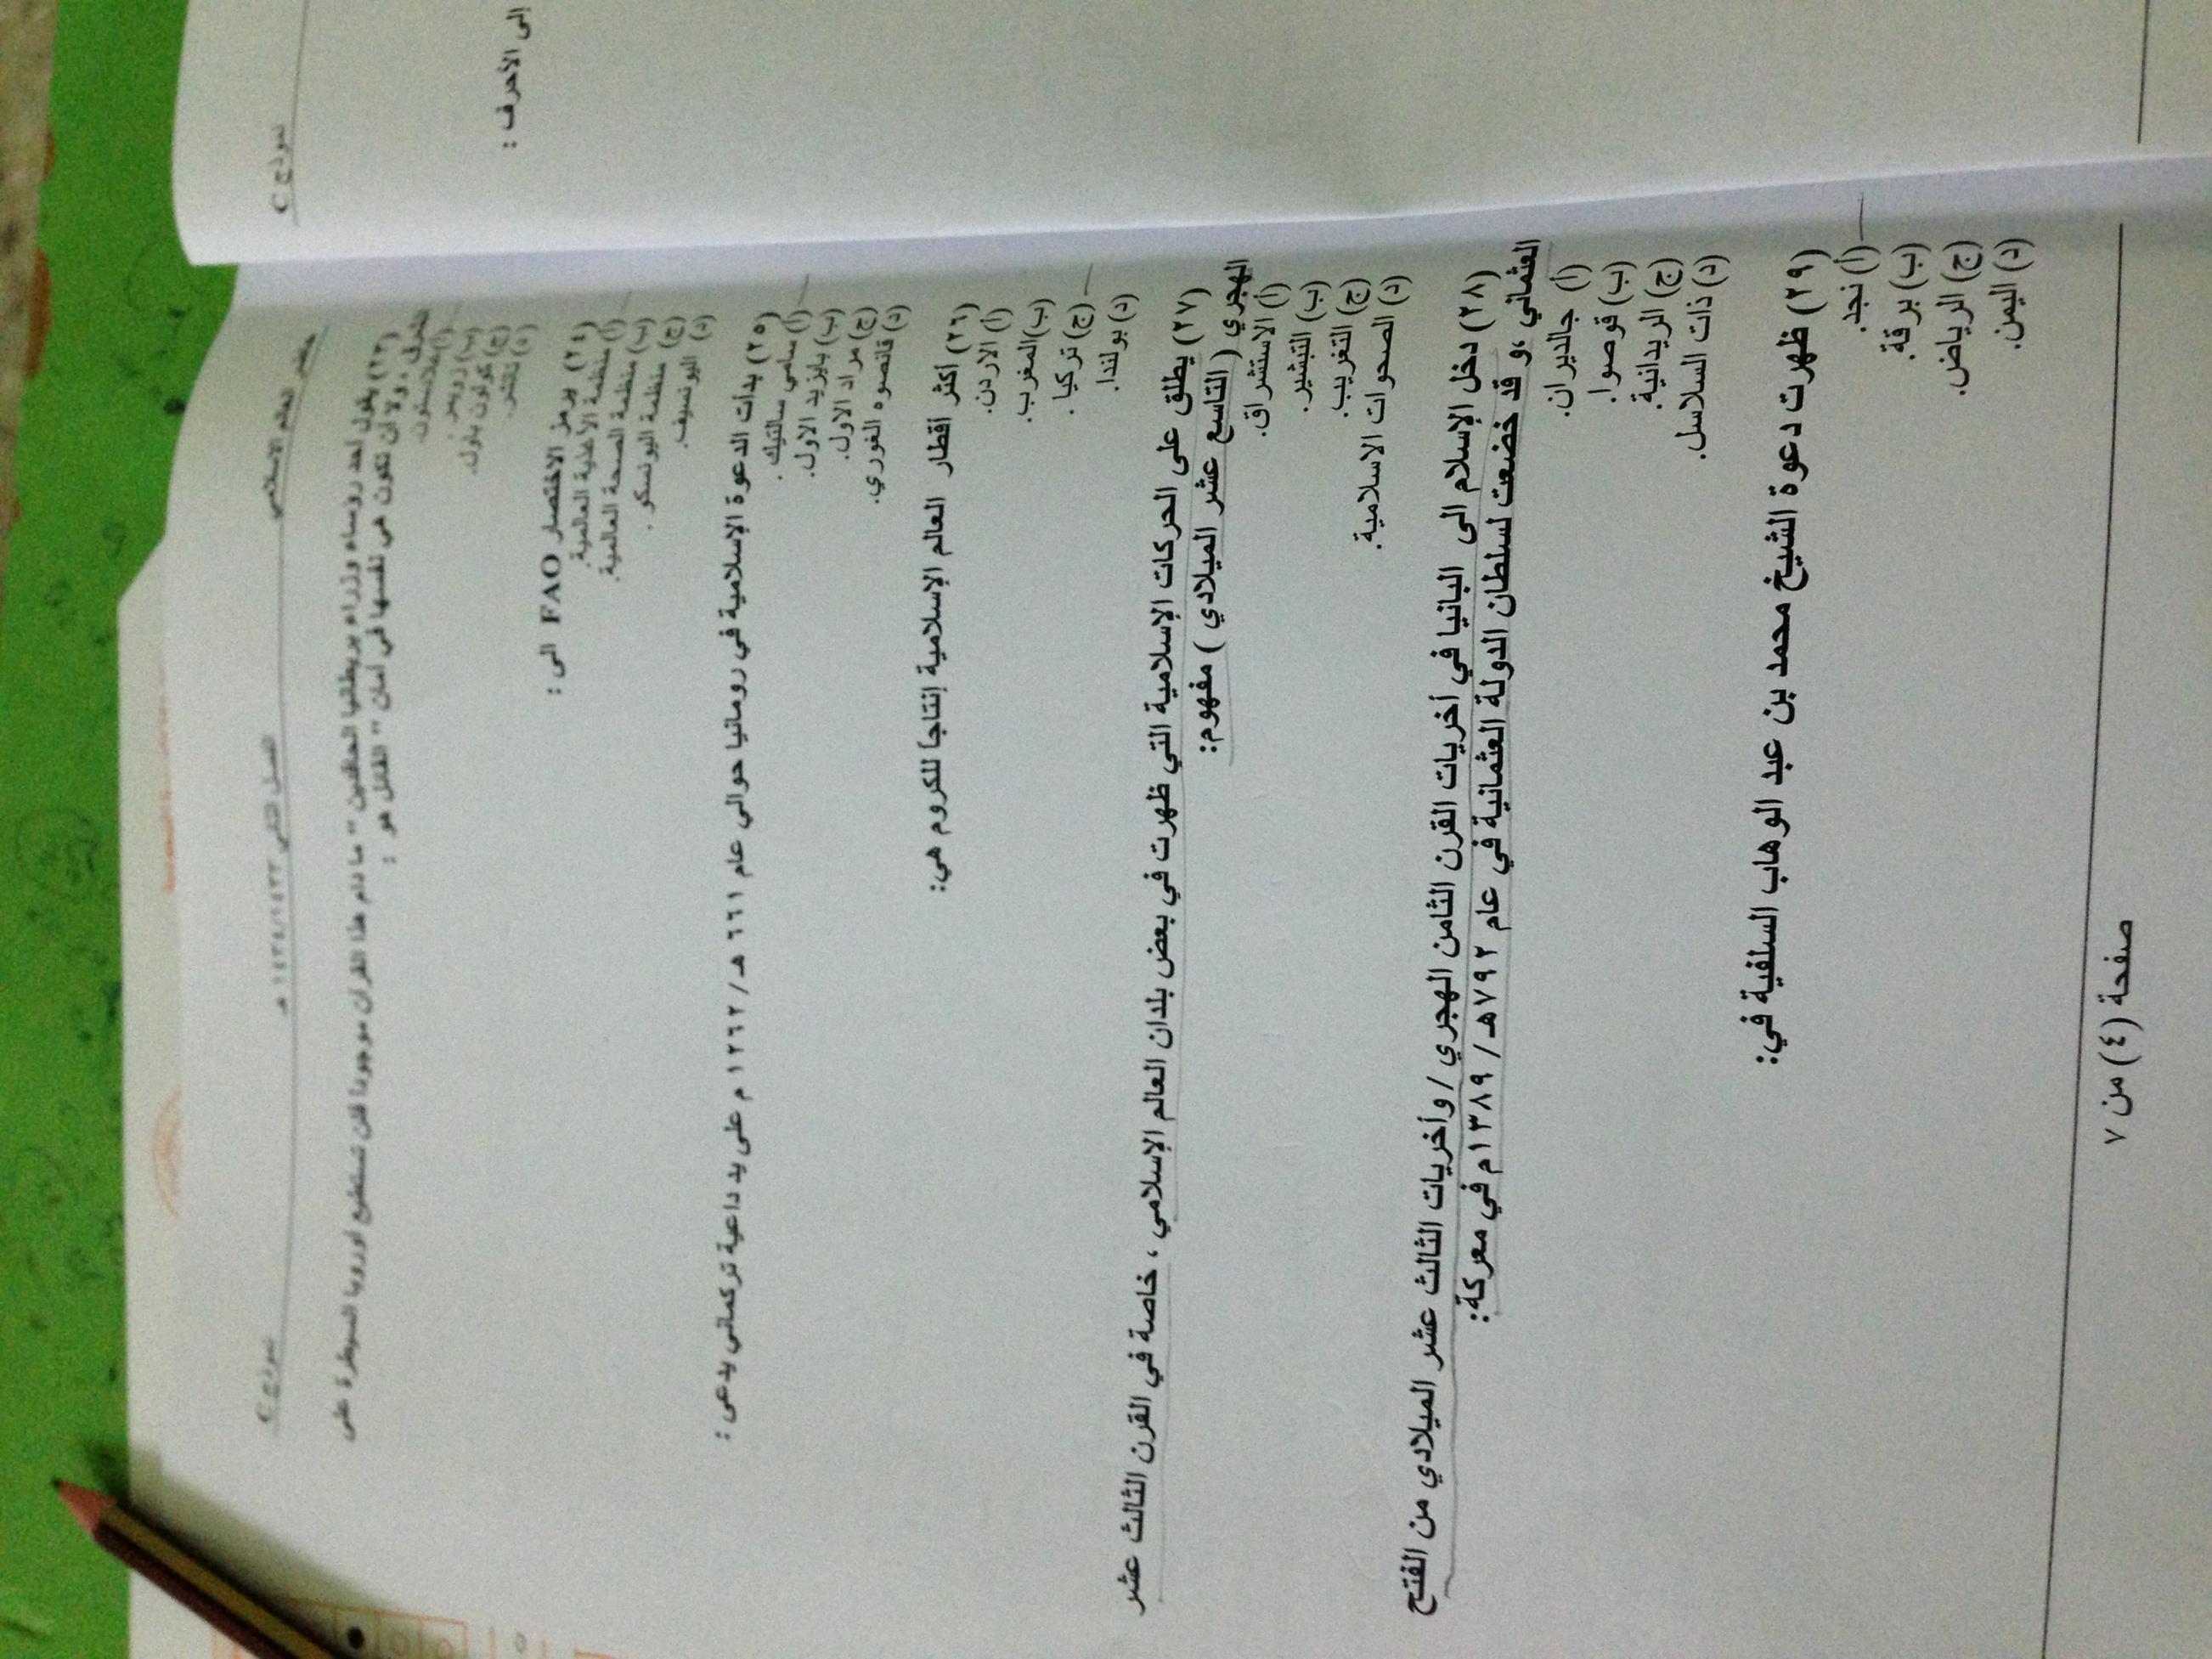 نموذج C
إلى الأحرف :
حاضر العالم الاسلامي
الفصل الثاني ١٤٣٤/١٤٣٣ هـ
نموذج C
(٢٣) يقول أحد رؤساء وزراء بريطانيا الحاقدين " ما دام هذا القرآن موجودا فلن تستطيع أوروبا السيطرة على
الشرق ، ولا أن تكون هي نفسها في أمان " القائل هو :
(أ) غلادستون.
(ب) زويمر.
(ج) كولون باول.
(د) تاتشر.
(٢٤) يرمز الاختصار FAO الى :
(أ) منظمة الأغذية العالمية.
(ب) منظمة الصحة العالمية.
(ج) منظمة اليونسكو .
(د) اليونسيف.
(٢٥) بدأت الدعوة الإسلامية في رومانيا حوالى عام ٦٦١ هـ/ ١٢٦٢ م على يد داعية تركماني يدعى :
(أ) سامي سالتيك .
(ب) بايزيد الاول.
(ج) مراد الاول.
(د) قانصوه الغوري.
(٢٦) أكثر أقطار العالم الإسلامية إنتاجاً للكروم هي:
(أ) الاردن.
(ب)المغرب.
(ج) تركيا .
(د) بولندا.
(٢٧) يطلق على الحركات الإسلامية التي ظهرت في بعض بلدان العالم الإسلامي ، خاصة في القرن الثالث عشر
الهجري (التاسع عشر الميلادي ) مفهوم:
(أ) الاستشراق.
(ب) التبشير.
(ج) التغريب.
(د) الصحوات الاسلامية.
(٢٨) دخل الإسلام الى البانيا في أخريات القرن الثامن الهجري / وأخريات الثالث عشر الميلادي من الفتح
العثماني ،و قد خضعت لسلطان الدولة العثمانية في عام ٧٩٢هـ/ ١٣٨٩م في معركة:
(أ) جالديران.
(ب) قوصوا.
(ج) الريدانية.
(د) ذات السلاسل.
(٢٩) ظهرت دعوة الشيخ محمد بن عبد الوهاب السلفية في:
(أ) نجد.
(ب) برقة.
(ج) الرياض.
(د) اليمن.
صفحة (٤) من ٧